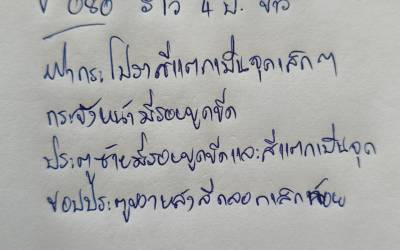 ฝากระโปรงสีแตกเป็นจุดเล็กๆ
กระจังหน้ามีรอยขูดขีด
ประตูซ้ายมีรอยขูดขีดและสีแตกเป็นจุด
ขอบประตูขวาหลังสีถลอกเล็กน้อย